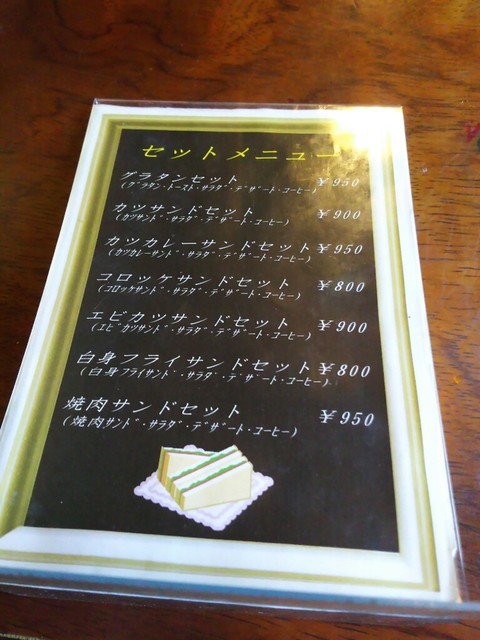 セットメニュー
グラタンセット ￥950
(ｸﾞﾗﾀﾝ･ﾄｰｽﾄ･ｻﾗﾀﾞ･ﾃﾞｻﾞｰﾄ･ｺｰﾋｰ)
カツサンドセット ￥900
(ｶﾂｻﾝﾄﾞ･ｻﾗﾀﾞ･ﾃﾞｻﾞｰﾄ･ｺｰﾋｰ)
カツカレーサンドセット ￥950
(ｶﾂｶﾚｰｻﾝﾄﾞ･ｻﾗﾀﾞ･ﾃﾞｻﾞｰﾄ･ｺｰﾋｰ)
コロッケサンドセット ￥800
(ｺﾛｯｹｻﾝﾄﾞ･ｻﾗﾀﾞ･ﾃﾞｻﾞｰﾄ･ｺｰﾋｰ)
エビカツサンドセット ￥900
(ｴﾋﾞｶﾂｻﾝﾄﾞ･ｻﾗﾀﾞ･ﾃﾞｻﾞｰﾄ･ｺｰﾋｰ)
白身フライサンドセット ￥800
(白身ﾌﾗｲｻﾝﾄﾞ･ｻﾗﾀﾞ･ﾃﾞｻﾞｰﾄ･ｺｰﾋｰ)
焼肉サンドセット ￥950
(焼肉ｻﾝﾄﾞ･ｻﾗﾀﾞ･ﾃﾞｻﾞｰﾄ･ｺｰﾋｰ)